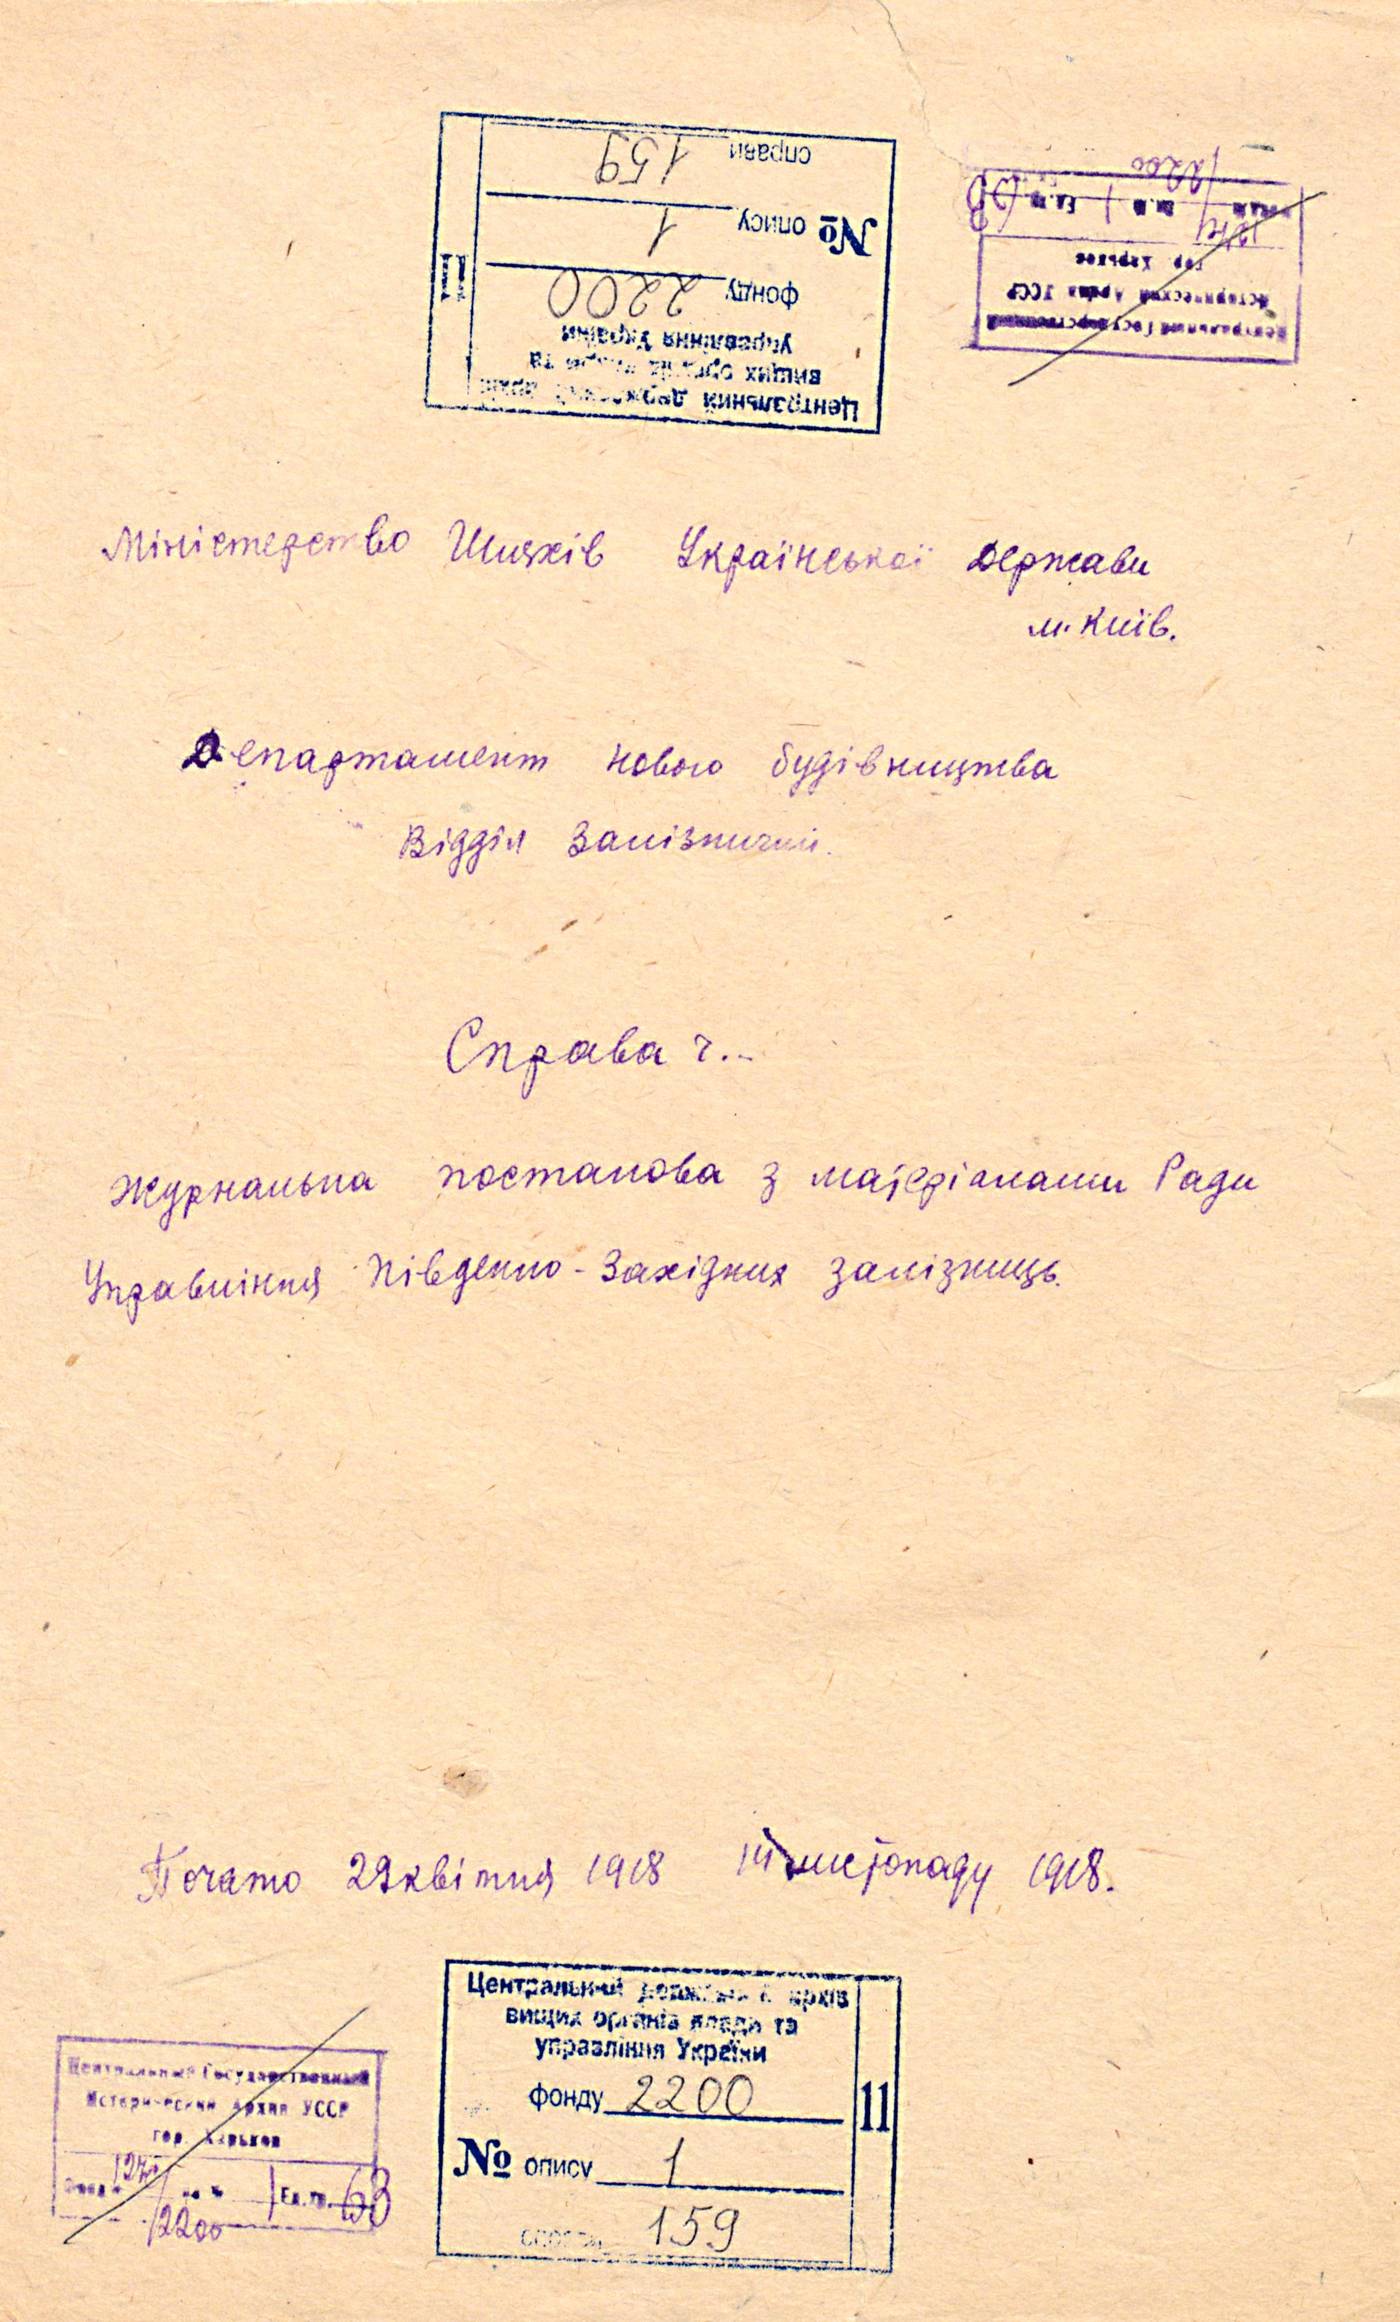 справи 159
№ опису 1
фонду 2200
Центральний державний архів
вищих органів влади та
управління України
11
2200
Фонд № Оп. № 1 Ед.хр. 63
гор. Харьков
Исторический Архив УССР
Центральный Государственный
Міністерство Шляхів Української Держави
м. Київ.
Департамент нового будівництва
Відділ Залізничий.
Справа ч...
Журнальна постанова з матеріалами Ради
Управління Південно-Західних залізниць.
Почато 29 квітня 1918 листопаду 1918.
Центральний державний архів
вищих органів влади та
управління України
фонду 2200
№ опису 1
справи 159
11
Центральный Государственный
Исторический Архив УССР
гор. Харьков
Фонд № оп. № 1 Ед.хр. 63
2200